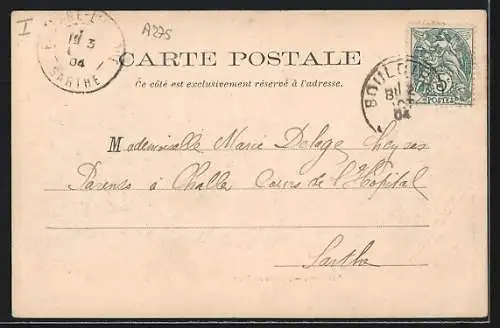 I
A275
3
04
SARTHE
CARTE POSTALE
Ce côté est exclusivement réservé à l'adresse.
BOULO
04
5
POSTES
Mademoiselle Marie Delage
à Challe Cours de l'Hopital
Sarthe